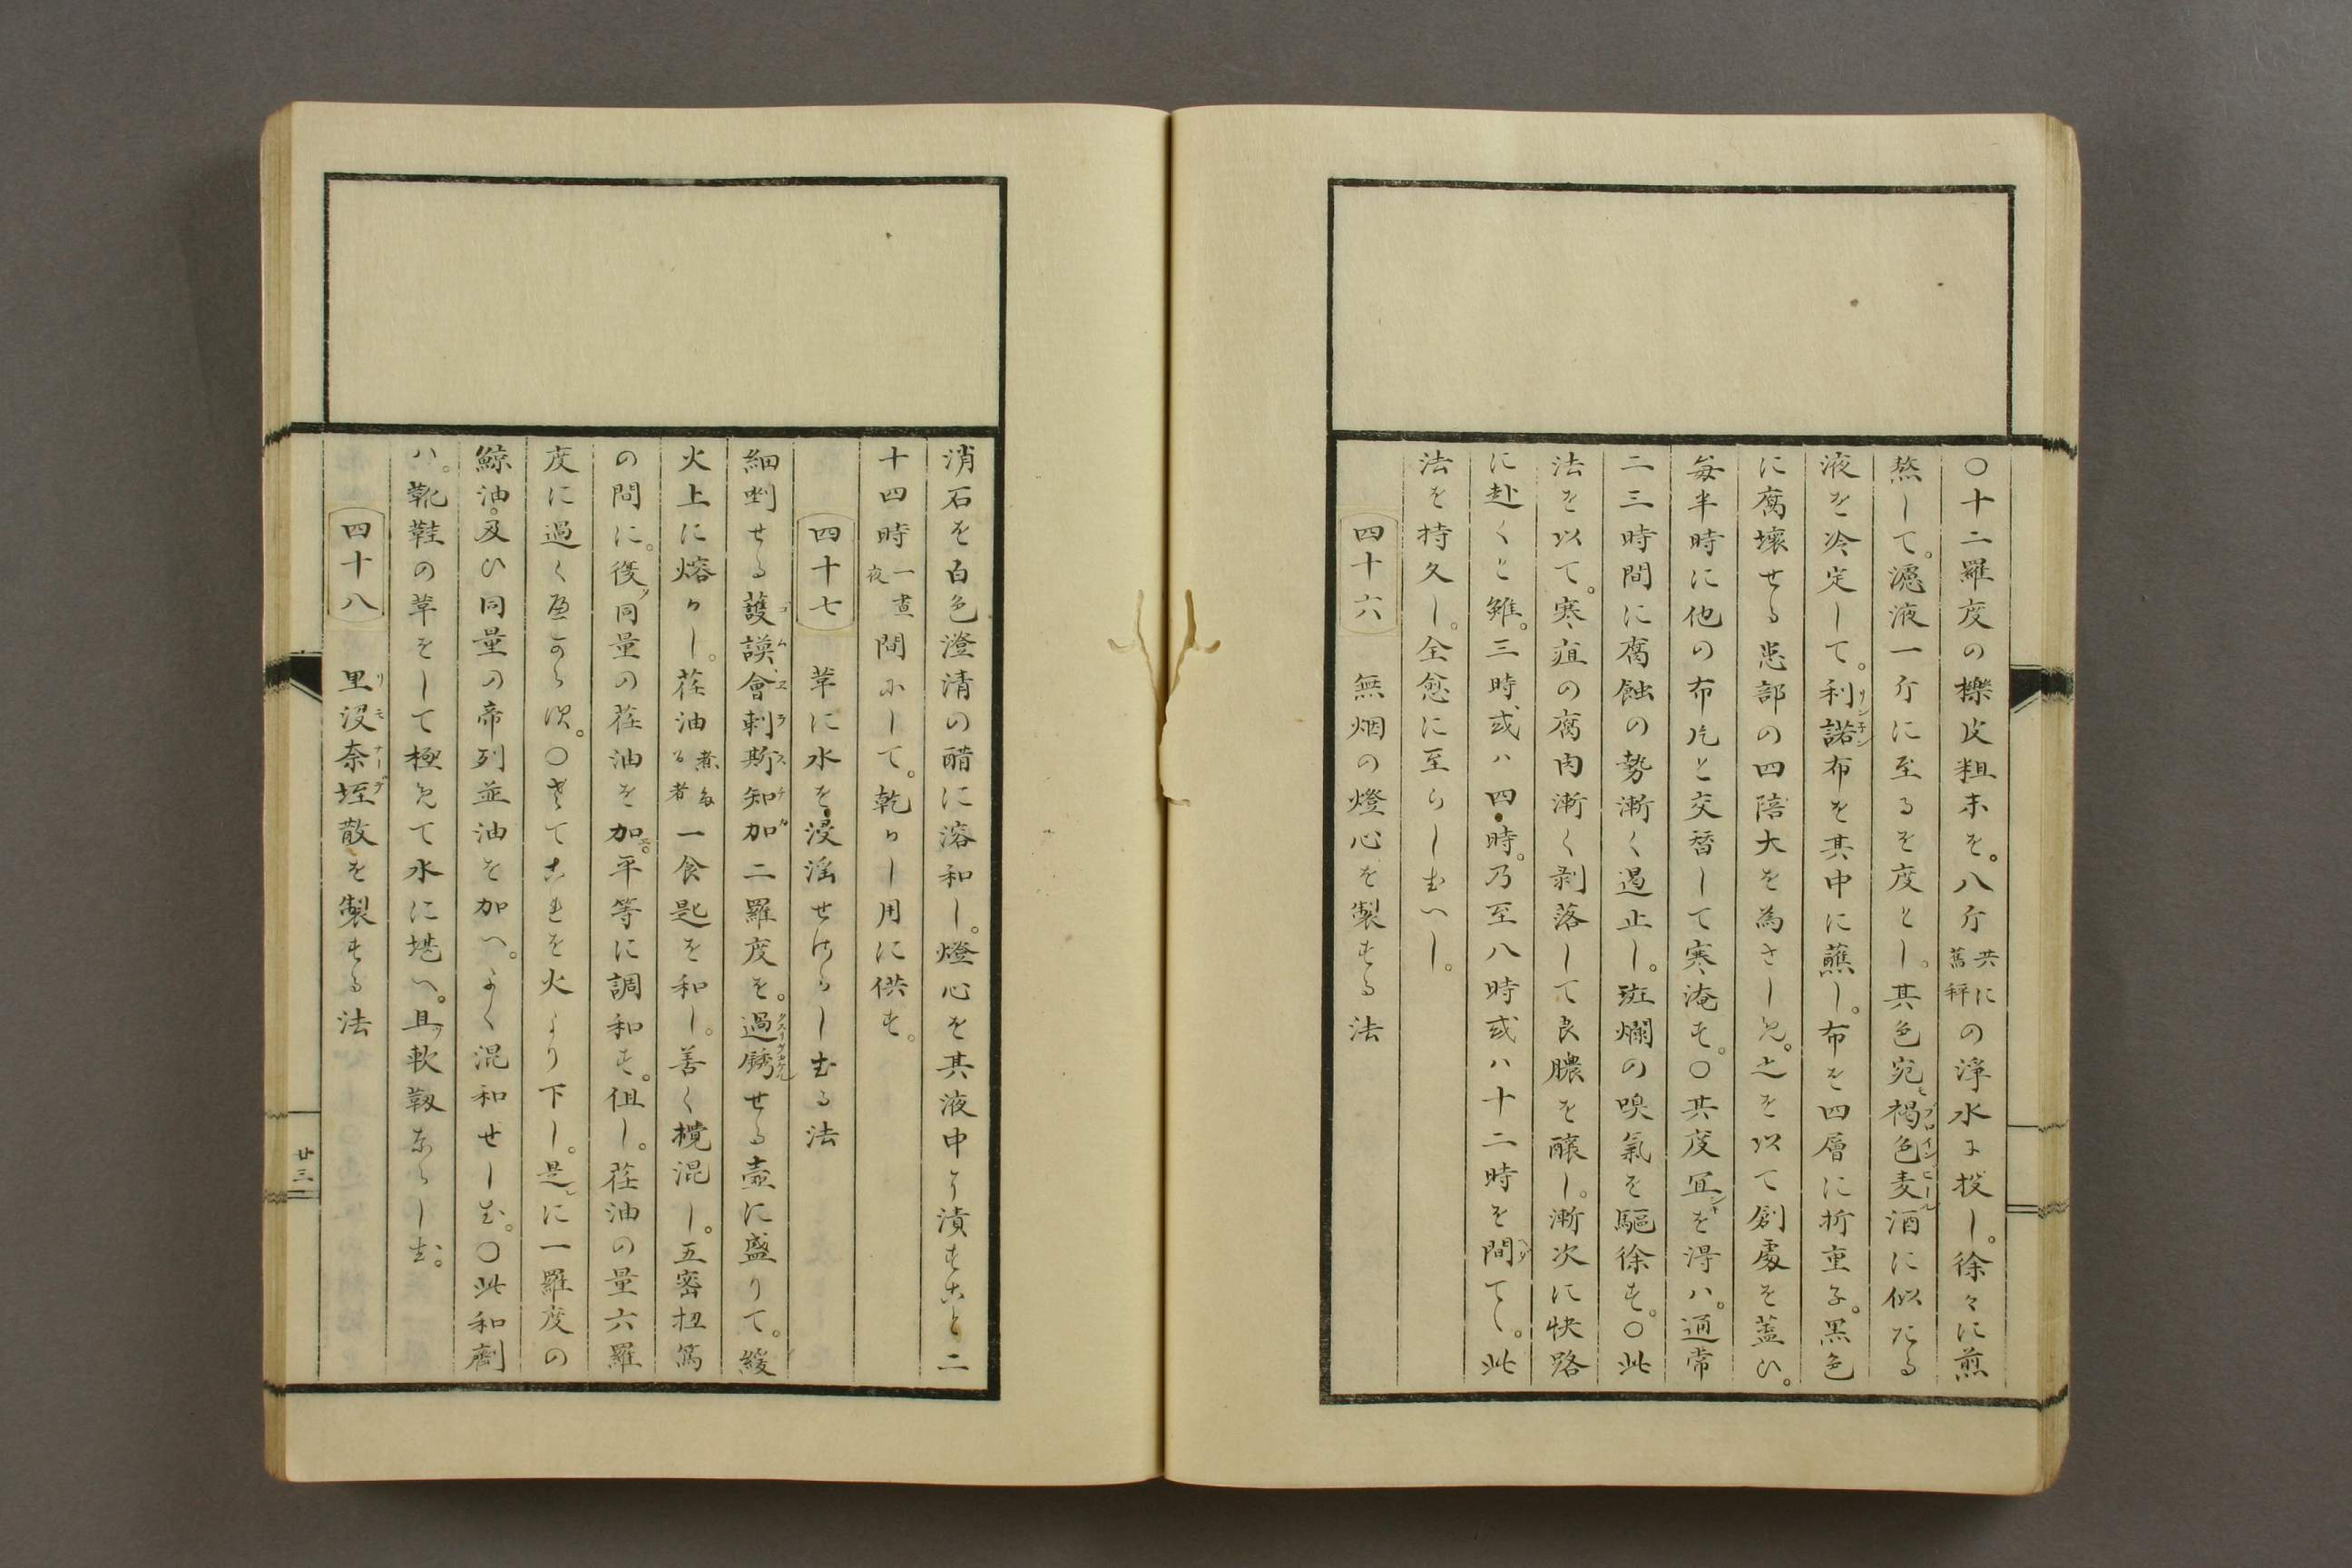 〇十二羅度の櫟皮粗末を。八斤共に舊秤の淨水に投し。徐々に煎
熬して。濾液一斤に至るを度とし。其色宛モ褐色麦酒ブロインビールに似たる
液を冷定して。利諾リンネン布を其中に蘸し。布を四層に折重子。黒色
に腐壊せる患部の四陪大を為さしめ。之を以て創處を蓋ひ。
毎半時に他の布片と交替して寒淹す。〇其度冝シキを得ハ。通常
二三時間に腐蝕の勢漸く遏止し。斑爛の嗅氣を驅徐す。〇此
法を以て。寒疽の腐肉漸く剥落して良膿を醸し。漸次に快路
に赴くと雖。三時或ハ四時。乃至八時或ハ十二時を間ヘダてゝ。此
法を持久し。全愈に至らしむへし。
四十六　無烟の燈心を製する法
消石を白色澄清の醋に溶和し。燈心を其液中に漬すこと二
十四時一晝夜間にして。乾かし用に供す。
四十七　革に水を浸滛せさらしむる法
細剉せる護謨會剌斯知加ゴムヱラスチカ二羅度を。過銹クスリガケルせる壷に盛りて。緩
火上に熔かし。荏油煮たる者一食匙を和し。善く攪混し。五密扭篤
の間に。復フ同量の荏油を加ヱ。平等に調和す。但し。荏油の量六羅
度に過くへからす。〇さてこれを火より下し。是に一羅度の
鯨油。及ひ同量の帝列並油を加へ。よく混和せしむ。〇此和劑
ハ。靴鞋の革をして極めて水に堪へ。且ツ軟靱ならしむ。
四十八　里沒奈垤リモナーデ散を製する法
廿三